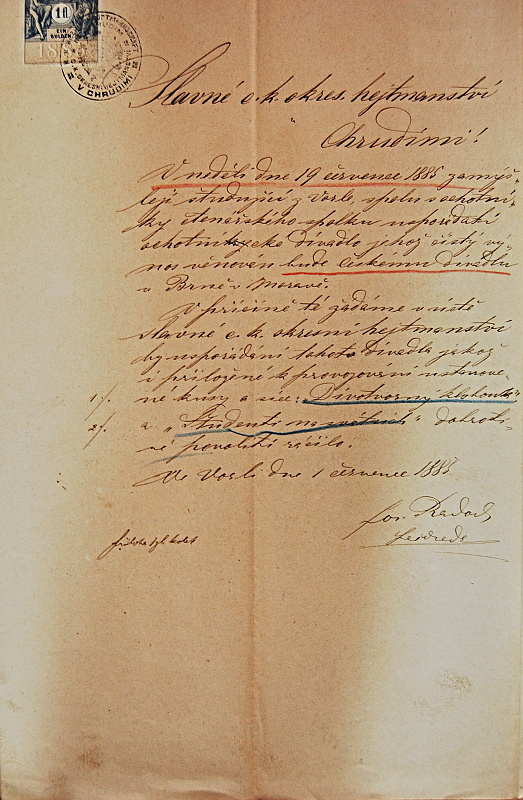 1 fl
EIN GULDEN
V CHRUDIMI
Slavné c. k. okres. hejtmanství
v Chrudimi!
V neděli dne 19 července 1885 zamýš-
lejí studující z Vorle, spolu s ochotní-
ky čtenářského spolku uspořádati
ochotnické divadlo jehož čistý vý-
nos věnován bude českému divadlu
v Brně v Moravě.
V příčině té žádáme v úctě
slavné c. k. okresní hejtmanství
by uspořádání tohoto divadla jakož
i přiložené k provozování ustanove-
1). né kusy a sice: „Divotvorný klobouk"
2). a „Studenti na " dobroti-
vě povoliti ráčilo.
Ve Vorli dne 1 července 1885
Jos.